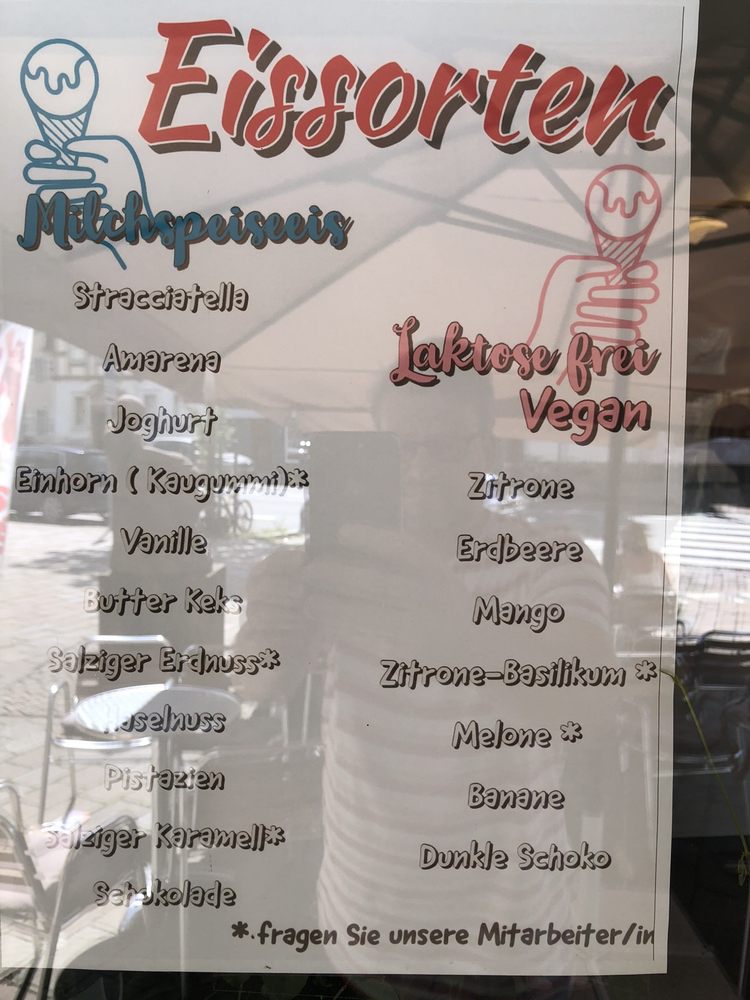 Eissorten
Milchspeiseeis
Stracciatella
Amarena
Joghurt
Einhorn ( Kaugummi)*
Vanille
Butter Keks
Salziger Erdnuss*
Haselnuss
Pistazien
Salziger Karamell*
Schokolade
Laktose frei
Vegan
Zitrone
Erdbeere
Mango
Zitrone-Basilikum *
Melone *
Banane
Dunkle Schoko
*.fragen Sie unsere Mitarbeiter/in